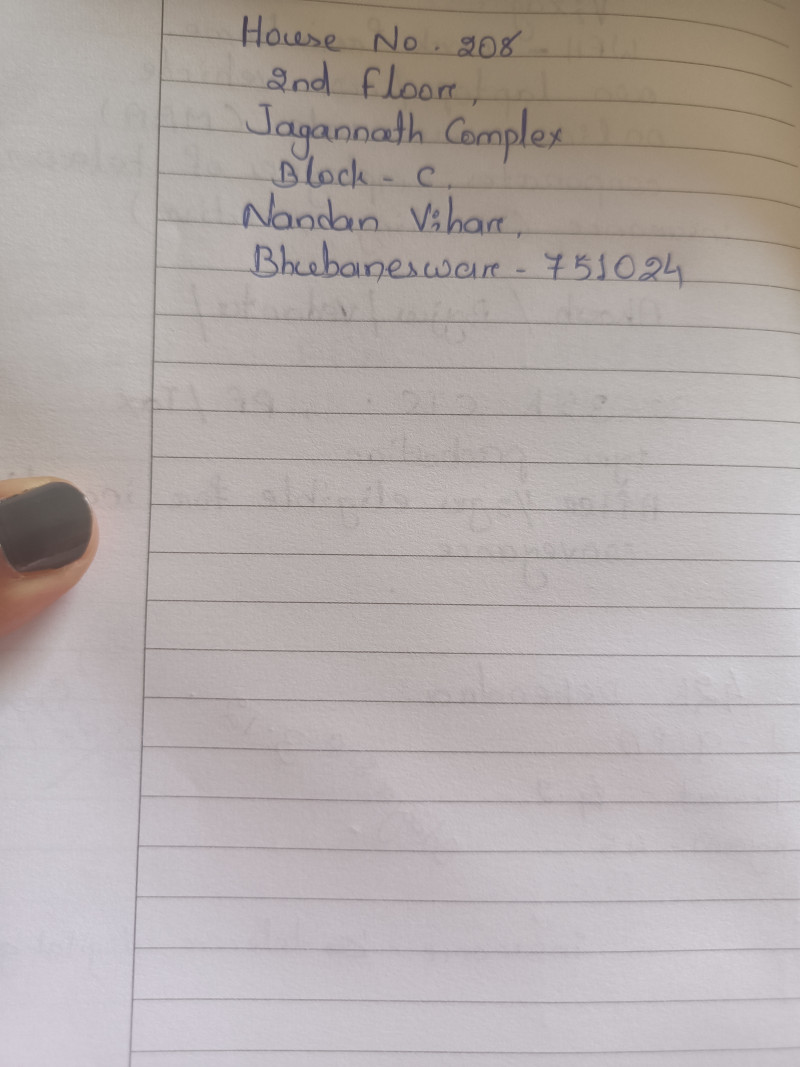 House No. 208
2nd Floor,
Jagannath Complex
Block - C.
Nandan Vihar,
Bhubaneswar - 751024